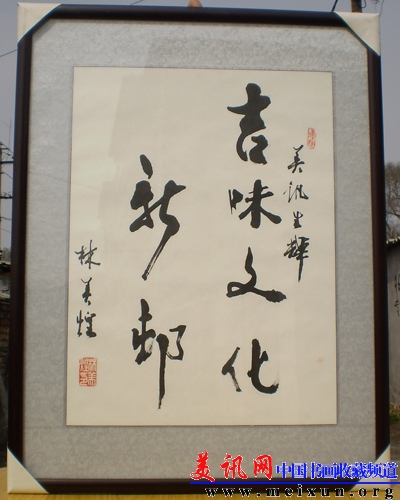 美訊生輝
吉味文化
新邨
林美煌
美讯网 中国书画收藏频道
www.meixun.org